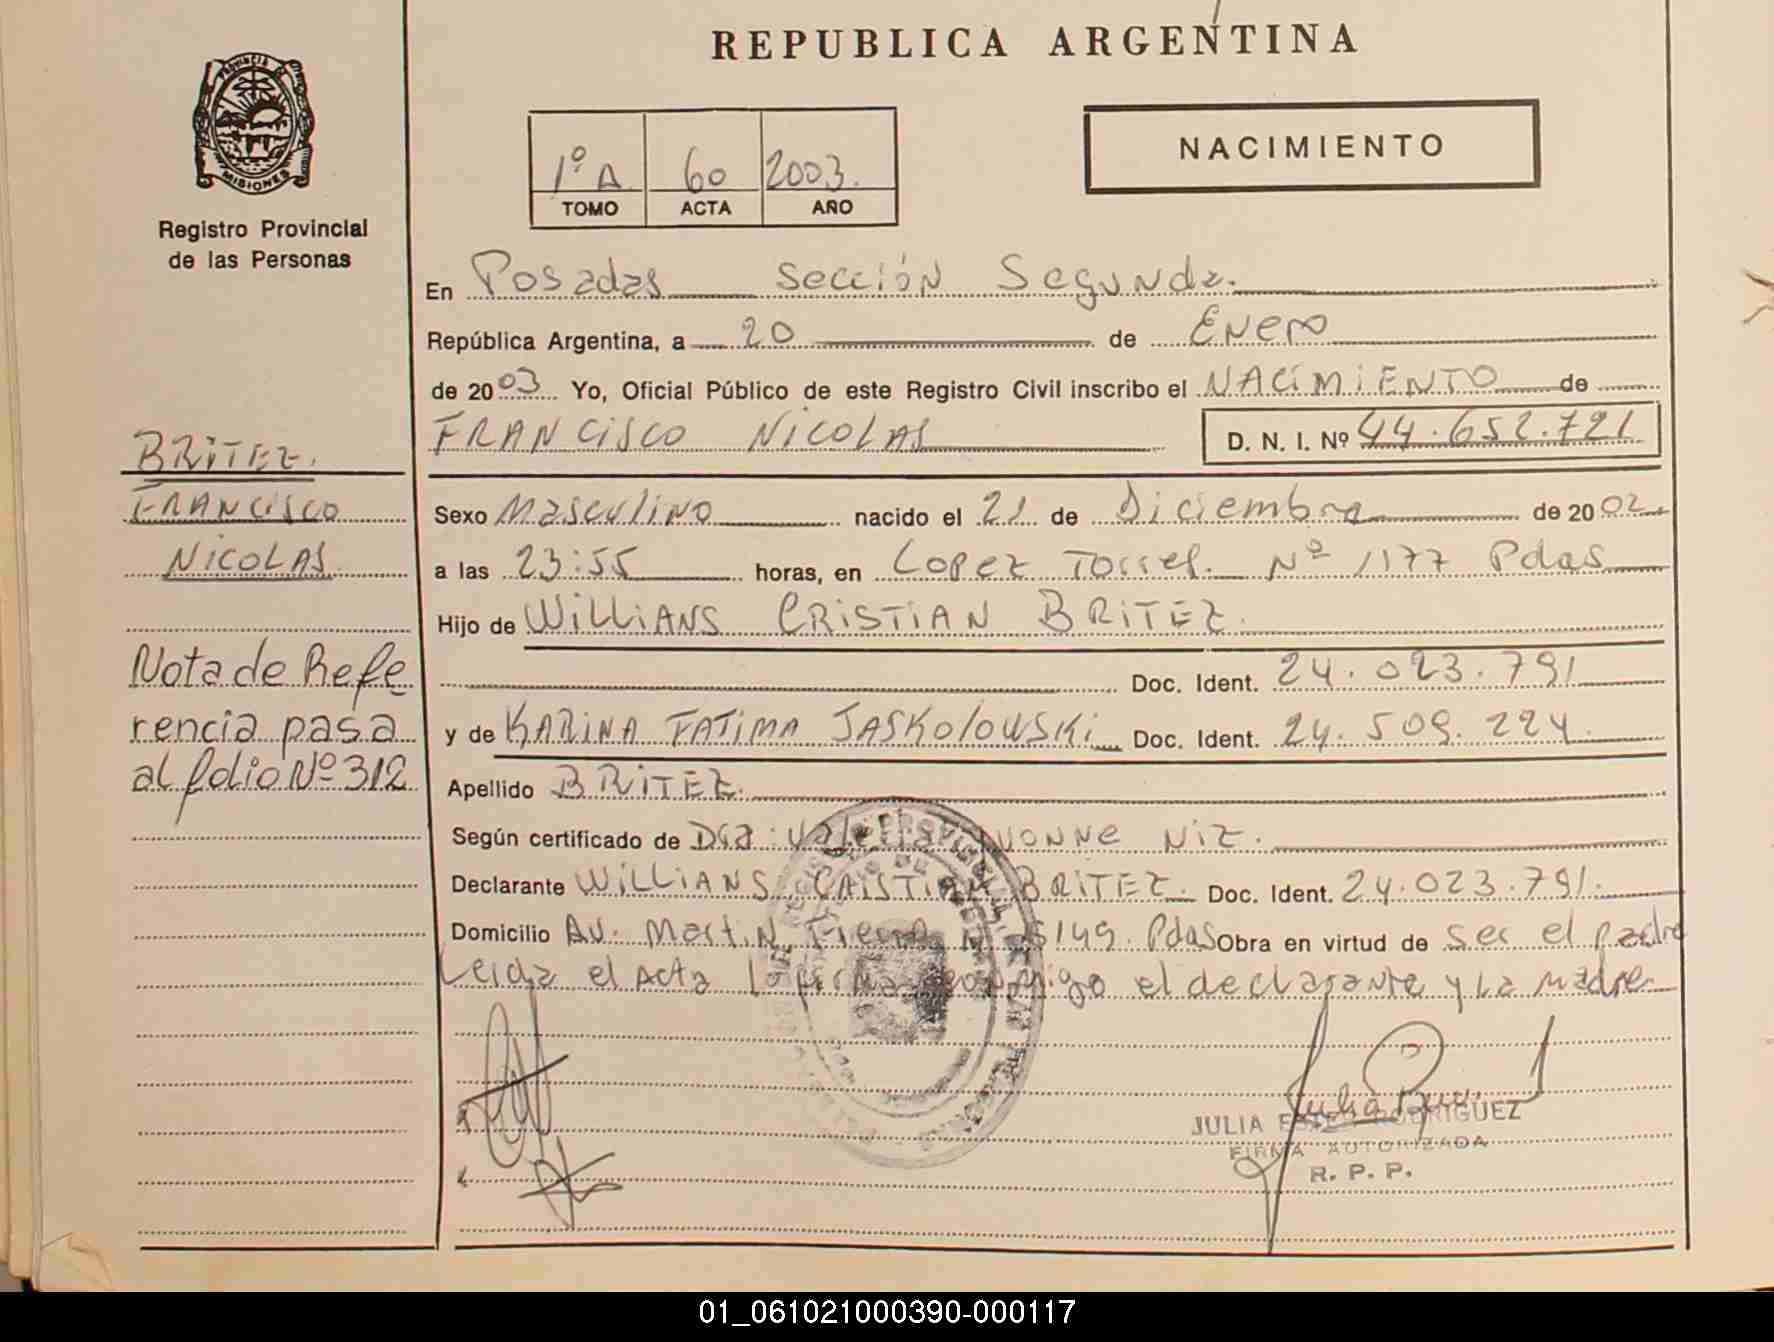 REPUBLICA ARGENTINA
PROVINCIA DE
MISIONES
Registro Provincial
de las Personas
1º A 60 2003.
TOMO ACTA AÑO
NACIMIENTO
En Posadas Sección Segunda.
República Argentina, a 20 de Enero
de 2003 Yo, Oficial Público de este Registro Civil inscribo el NACIMIENTO de
FRANCISCO NICOLAS D. N. I. Nº 44.652.721
BRITEZ.
FRANCISCO
NICOLAS
Sexo Masculino nacido el 21 de Diciembre de 2002
a las 23:55 horas, en Lopez Torres. Nº 1177 Pdas
Hijo de WILLIANS CRISTIAN BRITEZ.
Doc. Ident. 24.023.791
y de KARINA FATIMA JASKOlOWSKi Doc. Ident. 24.509.224.
Nota de Refe
rencia pasa
al folio Nº 312
Apellido BRITEZ.
Según certificado de Dra. Valeria Ivonne Niz.
Declarante WILLIANS CRISTIAN BRITEZ. Doc. Ident. 24.023.791.
Domicilio Av. Martin Fierro 6149. Pdas Obra en virtud de ser el padre
Leida el Acta la firma conmigo el declarante y La madre
JULIA ESTER RODRIGUEZ
FIRMA AUTORIZADA
R. P. P.
01_061021000390-000117